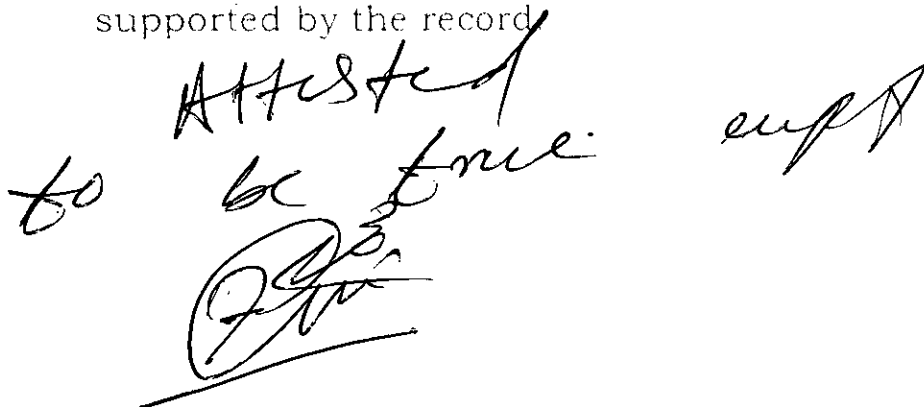 supported by the record.
Attested
to be true